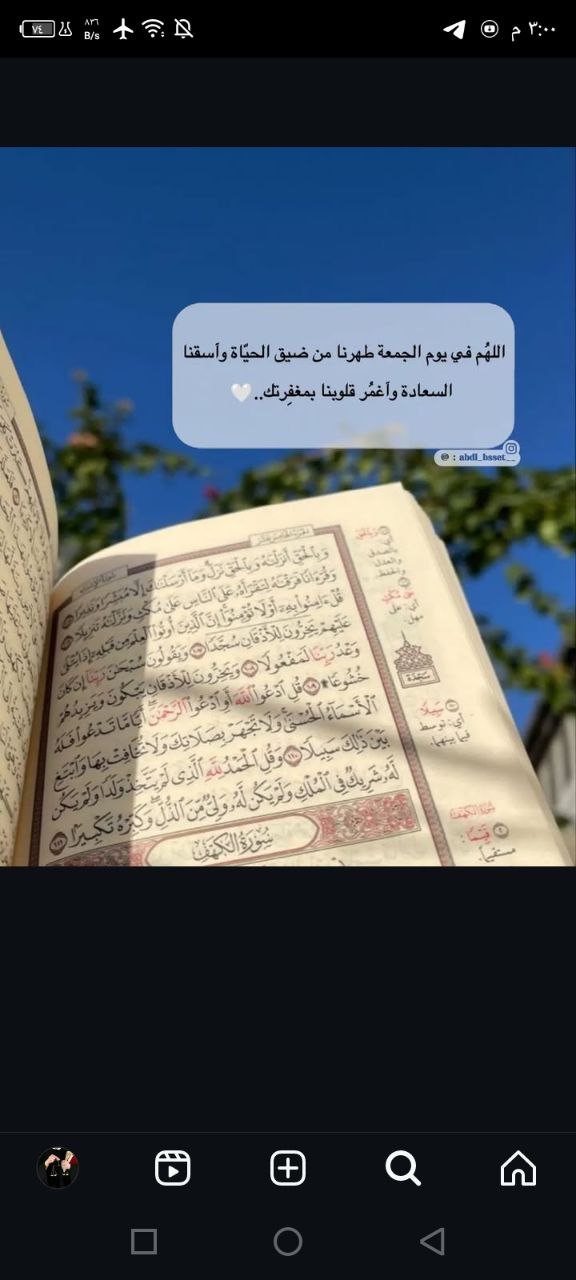 ٧٤
٨٣٦
B/s
٣:٠٠ م
اللهُم في يوم الجمعة طهرنا من ضيق الحيّاة وآسقنا
السعادة وآغمُر قلوبنا بمغفِرتك..🤍
@ : abdl_bsset__
وَبِالْحَقِّ أَنزَلْنَاهُ وَبِالْحَقِّ نَزَلَ وَمَا أَرْسَلْنَاكَ إِلَّا مُبَشِّرًا وَنَذِيرًا ١٠٥
وَقُرْءَانًا فَرَقْنَاهُ لِتَقْرَأَهُ عَلَى النَّاسِ عَلَى مُكْثٍ وَنَزَّلْنَاهُ تَنزِيلًا ١٠٦
قُلْ ءَامِنُوا بِهِ أَوْ لَا تُؤْمِنُوا إِنَّ الَّذِينَ أُوتُوا الْعِلْمَ مِن قَبْلِهِ إِذَا يُتْلَى
عَلَيْهِمْ يَخِرُّونَ لِلْأَذْقَانِ سُجَّدًا ١٠٧ وَيَقُولُونَ سُبْحَانَ رَبِّنَا إِن كَانَ
وَعْدُ رَبِّنَا لَمَفْعُولًا ١٠٨ وَيَخِرُّونَ لِلْأَذْقَانِ يَبْكُونَ وَيَزِيدُهُمْ
خُشُوعًا ١٠٩ قُلِ ادْعُوا اللَّهَ أَوِ ادْعُوا الرَّحْمَٰنَ أَيًّا مَّا تَدْعُوا فَلَهُ
الْأَسْمَاءُ الْحُسْنَىٰ وَلَا تَجْهَرْ بِصَلَاتِكَ وَلَا تُخَافِتْ بِهَا وَابْتَغِ
بَيْنَ ذَٰلِكَ سَبِيلًا ١١٠ وَقُلِ الْحَمْدُ لِلَّهِ الَّذِي لَمْ يَتَّخِذْ وَلَدًا وَلَمْ يَكُن
لَّهُ شَرِيكٌ فِي الْمُلْكِ وَلَمْ يَكُن لَّهُ وَلِيٌّ مِّنَ الذُّلِّ وَكَبِّرْهُ تَكْبِيرًا ١١١
سُورَةُ الْكَهْفِ
سَجْدَة
سَبِيلًا
أي: توسط
فيما بينهما.
سُورَةُ الْكَهْفِ
قَيِّمًا:
مستقيماً.